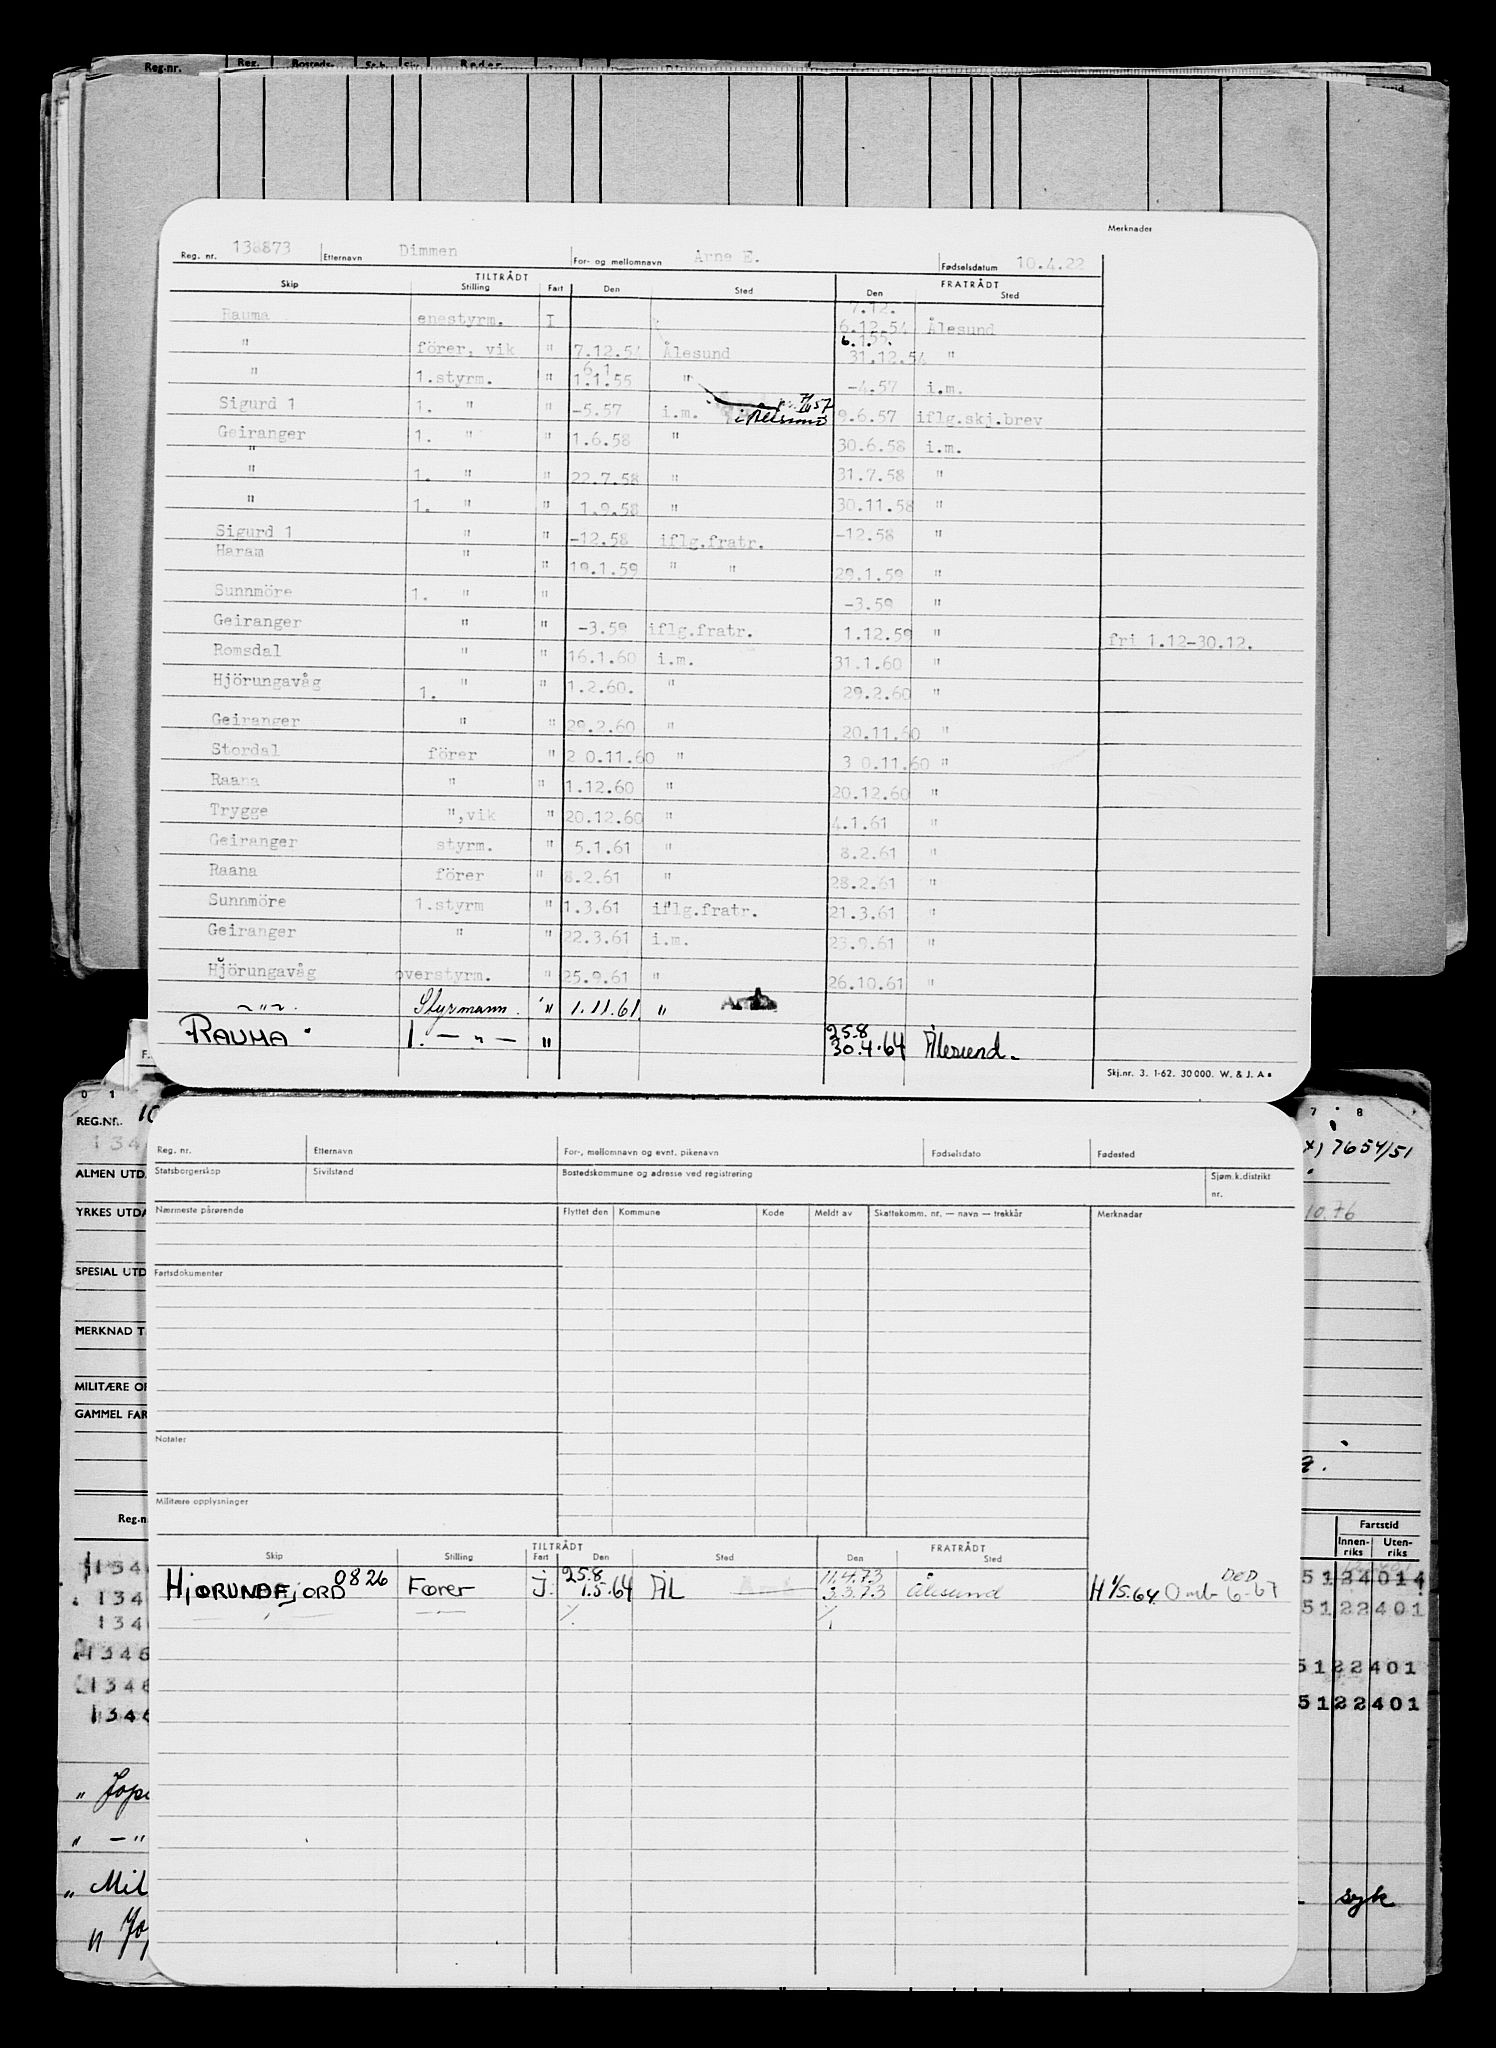 Reg.nr. Reg. Bosteds- St.b. Siv. Reder
Merknader
Reg. nr. 138873 Etternavn Dimmen For- og mellomnavn Arne E. Fødselsdatum 10.4.22
TILTRÅDT FRATRÅDT
Skip Stilling Fart Den Sted Den Sted
7.12.
Rauma enestyrm. I 6.12.54 Ålesund
6.1.55.
" förer, vik " 7.12.54 Ålesund 31.12.54 "
6.1
" 1.styrm. " 1.1.55 " -4.57 i.m.
Sigurd 1 1. " " -5.57 i.m. i Ålesund 9.6.57 iflg.skj.brev
Geiranger 1. " " 1.6.58 " 30.6.58 i.m.
"
" 1. " " 22.7.58 " 31.7.58 "
" 1. " " 1.9.58 " 30.11.58 "
Sigurd 1 " " -12.58 iflg.fratr. -12.58 "
Haram " " 19.1.59 " " 29.1.59 "
Sunnmöre 1. " " -3.59 "
Geiranger " " -3.59 iflg.fratr. 1.12.59 " fri 1.12-30.12.
Romsdal " " 16.1.60 i.m. 31.1.60 "
Hjörungavåg 1. " " 1.2.60. " 29.2.60 "
Geiranger " " 29.2.60 " 20.11.60 "
Stordal förer " 2 0.11.60 " 3 0.11.60 "
Raana " " 1.12.60 " 20.12.60 "
Trygge ",vik " 20.12.60 " 4.1.61 "
Geiranger styrm. " 5.1.61 " 8.2.61 "
Raana förer " 8.2.61 " 28.2.61 "
Sunnmöre 1.styrm " 1.3.61 iflg.fratr. 21.3.61 "
Geiranger " " 22.3.61 i.m. 23.9.61 "
Hjörungavåg overstyrm. " 25.9.61 " 26.10.61 "
~"~. Styrmann. " 1.11.61. "
25.8
RAUMA 1. — " — " 30.4.64 Ålesund.
Skj.nr. 3. 1-62. 30 000. W. & J. A s
0 1 7 8
REG.Nr. 10
134
x) 7654/51
ALMEN UTDA
YRKES UTDA
10.76
SPESIAL UTD
MERKNAD T
MILITÆRE OP
GAMMEL FAR
Reg. nr. Etternavn For-, mellomnavn og evnt. pikenavn Fødselsdato Fødested
Statsborgerskap Sivilstand Bostedskommune og adresse ved registrering Sjøm.k.distrikt
nr.
Nærmeste pårørende Flyttet den Kommune Kode Meldt av Skattekomm. nr. — navn — trekkår Merknader
Fartsdokumenter
Notater
Militære opplysninger
Reg.n
Fartstid
Innen-riks Uten-riks
TILTRÅDT FRATRÅDT
Skip Stilling Fart Den Sted Den Sted
0826 25.8 11.4.73 DED
HJØRUNDFJORD Fører J. 1.5.64 ÅL 3.3.73 Ålesund H 1/5.64. Omb 6-67
134 5122401
1346 5122401
1346
1346 5122401
" Mil syk